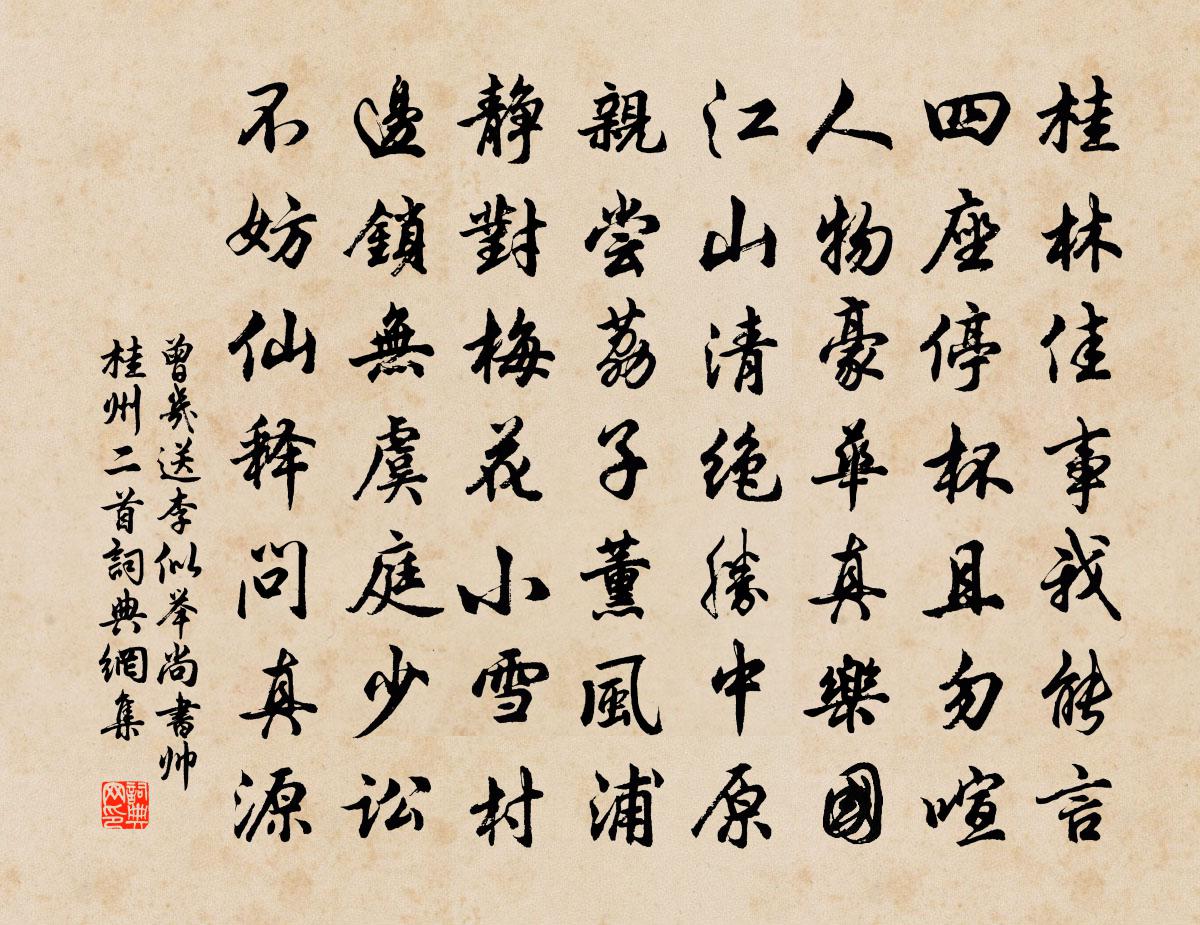 桂林佳事我能言
四座停杯且勿喧
人物豪華真樂國
江山清絶勝中原
親嘗荔子薰風浦
靜對梅花小雪村
邊鎖無虞庭少訟
不妨仙释問真源
曾幾送李似举尚書帅
桂州二首詞典網集
詞典
网印